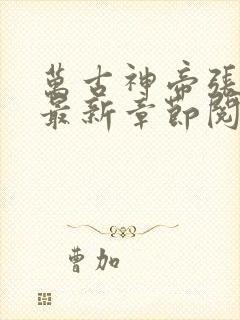 萬古神帝張
最新章節閱
曹加